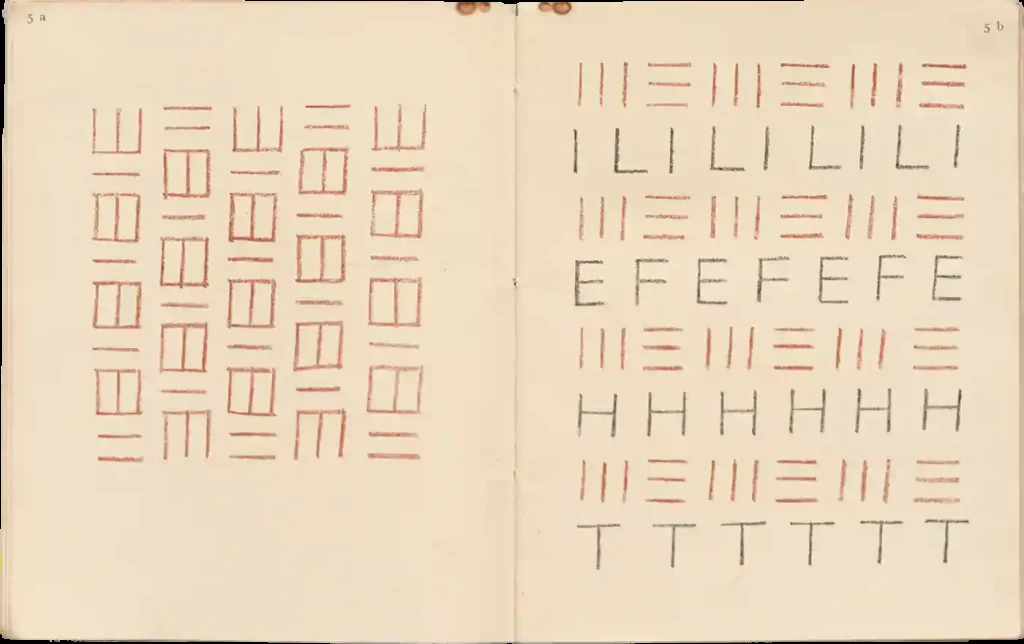 5 a
5 b
I L I L I L I L I
E F E F E F E
H H H H H H
T T T T T T